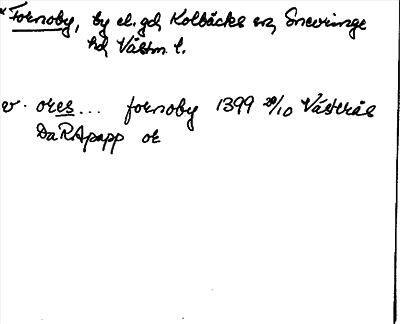 *Fornoby, by el. gd, Kolbäcks sn, Snevringe
hd, Västm. l.
v. ores... fornoby 1399 29/10 Västerås
DaRApapp or